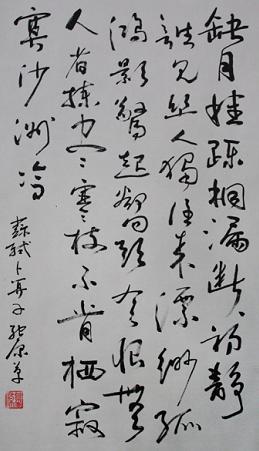 缺月挂疏桐漏断人初静
谁见幽人独往来漂缈孤
鸿影惊起却回头有恨無
人省拣尽寒枝不肯栖寂
寞沙洲冷
蘇軾卜算子